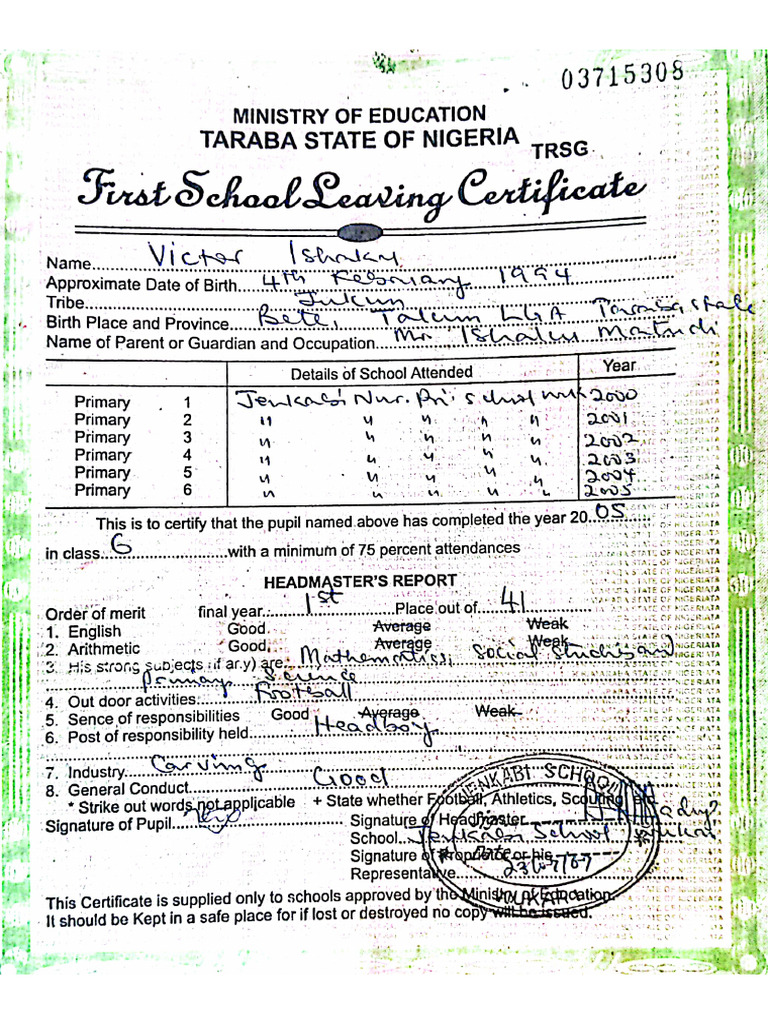 03715308
MINISTRY OF EDUCATION
TARABA STATE OF NIGERIA
TRSG
First School Leaving Certificate
Name Victor Ishaku
Approximate Date of Birth 4th February 1994
Tribe Jukun
Birth Place and Province Bete, Takum LGA Taraba State
Name of Parent or Guardian and Occupation Mr. Ishaku
Details of School Attended Year
Primary 1 Jenkabi Nur. Pri. School 2000
Primary 2 " " " " " 2001
Primary 3 " " " " " 2002
Primary 4 " " " " " 2003
Primary 5 " " " " " 2004
Primary 6 " " " " 2005
This is to certify that the pupil named above has completed the year 2005
in class 6 with a minimum of 75 percent attendances
HEADMASTER'S REPORT
Order of merit final year 1st Place out of 41
1. English Good Average Weak
2. Arithmetic Good Average Weak
3. His strong subjects (if any) are: Mathematics, Social Studies and
Primary Science
4. Out door activities: Football
5. Sence of responsibilities Good Average Weak
6. Post of responsibility held Headboy
7. Industry Carving
8. General Conduct Good
* Strike out words not applicable + State whether Football, Athletics, Scouting etc.
Signature of Pupil
Signature of Headmaster
School Jenkabi School Wukari
Signature of Proprietor or his
Representative
JENKABI SCHOOL
Date
23/07/07
WUKARI
This Certificate is supplied only to schools approved by the Ministry of Education.
It should be Kept in a safe place for if lost or destroyed no copy will be issued.